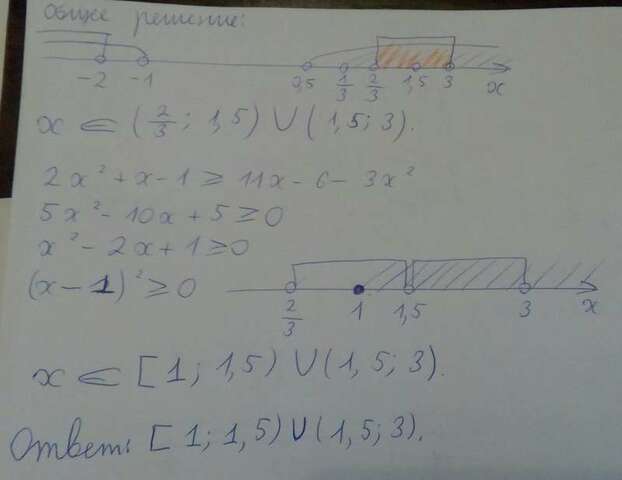 Общее решение:
-2 -1 0,5 1/3 2/3 1,5 3 x
x ∈ (2/3; 1,5) ∪ (1,5; 3).
2x² + x - 1 ≥ 11x - 6 - 3x²
5x² - 10x + 5 ≥ 0
x² - 2x + 1 ≥ 0
(x - 1)² ≥ 0
2/3 1 1,5 3 x
x ∈ [1; 1,5) ∪ (1,5; 3).
Ответ: [1; 1,5) ∪ (1,5; 3).